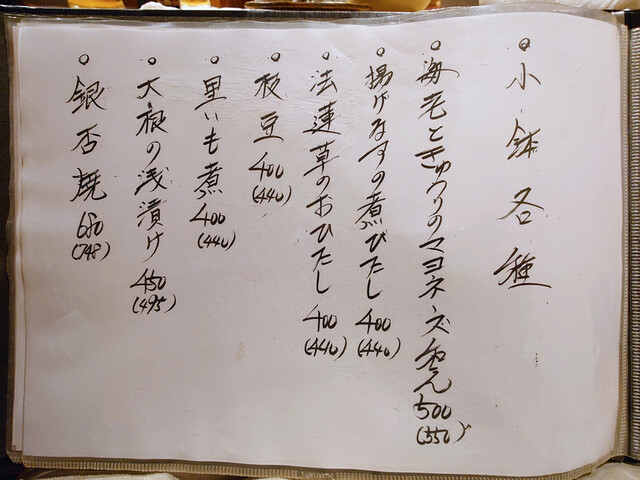 小鉢各種
海老ときゅうりのマヨネーズ和え 500 (550)
揚げなすの煮びたし 400 (440)
法蓮草のおひたし 400 (440)
枝豆 400 (440)
里いも煮 400 (440)
大根の浅漬け 450 (495)
銀杏焼 680 (748)